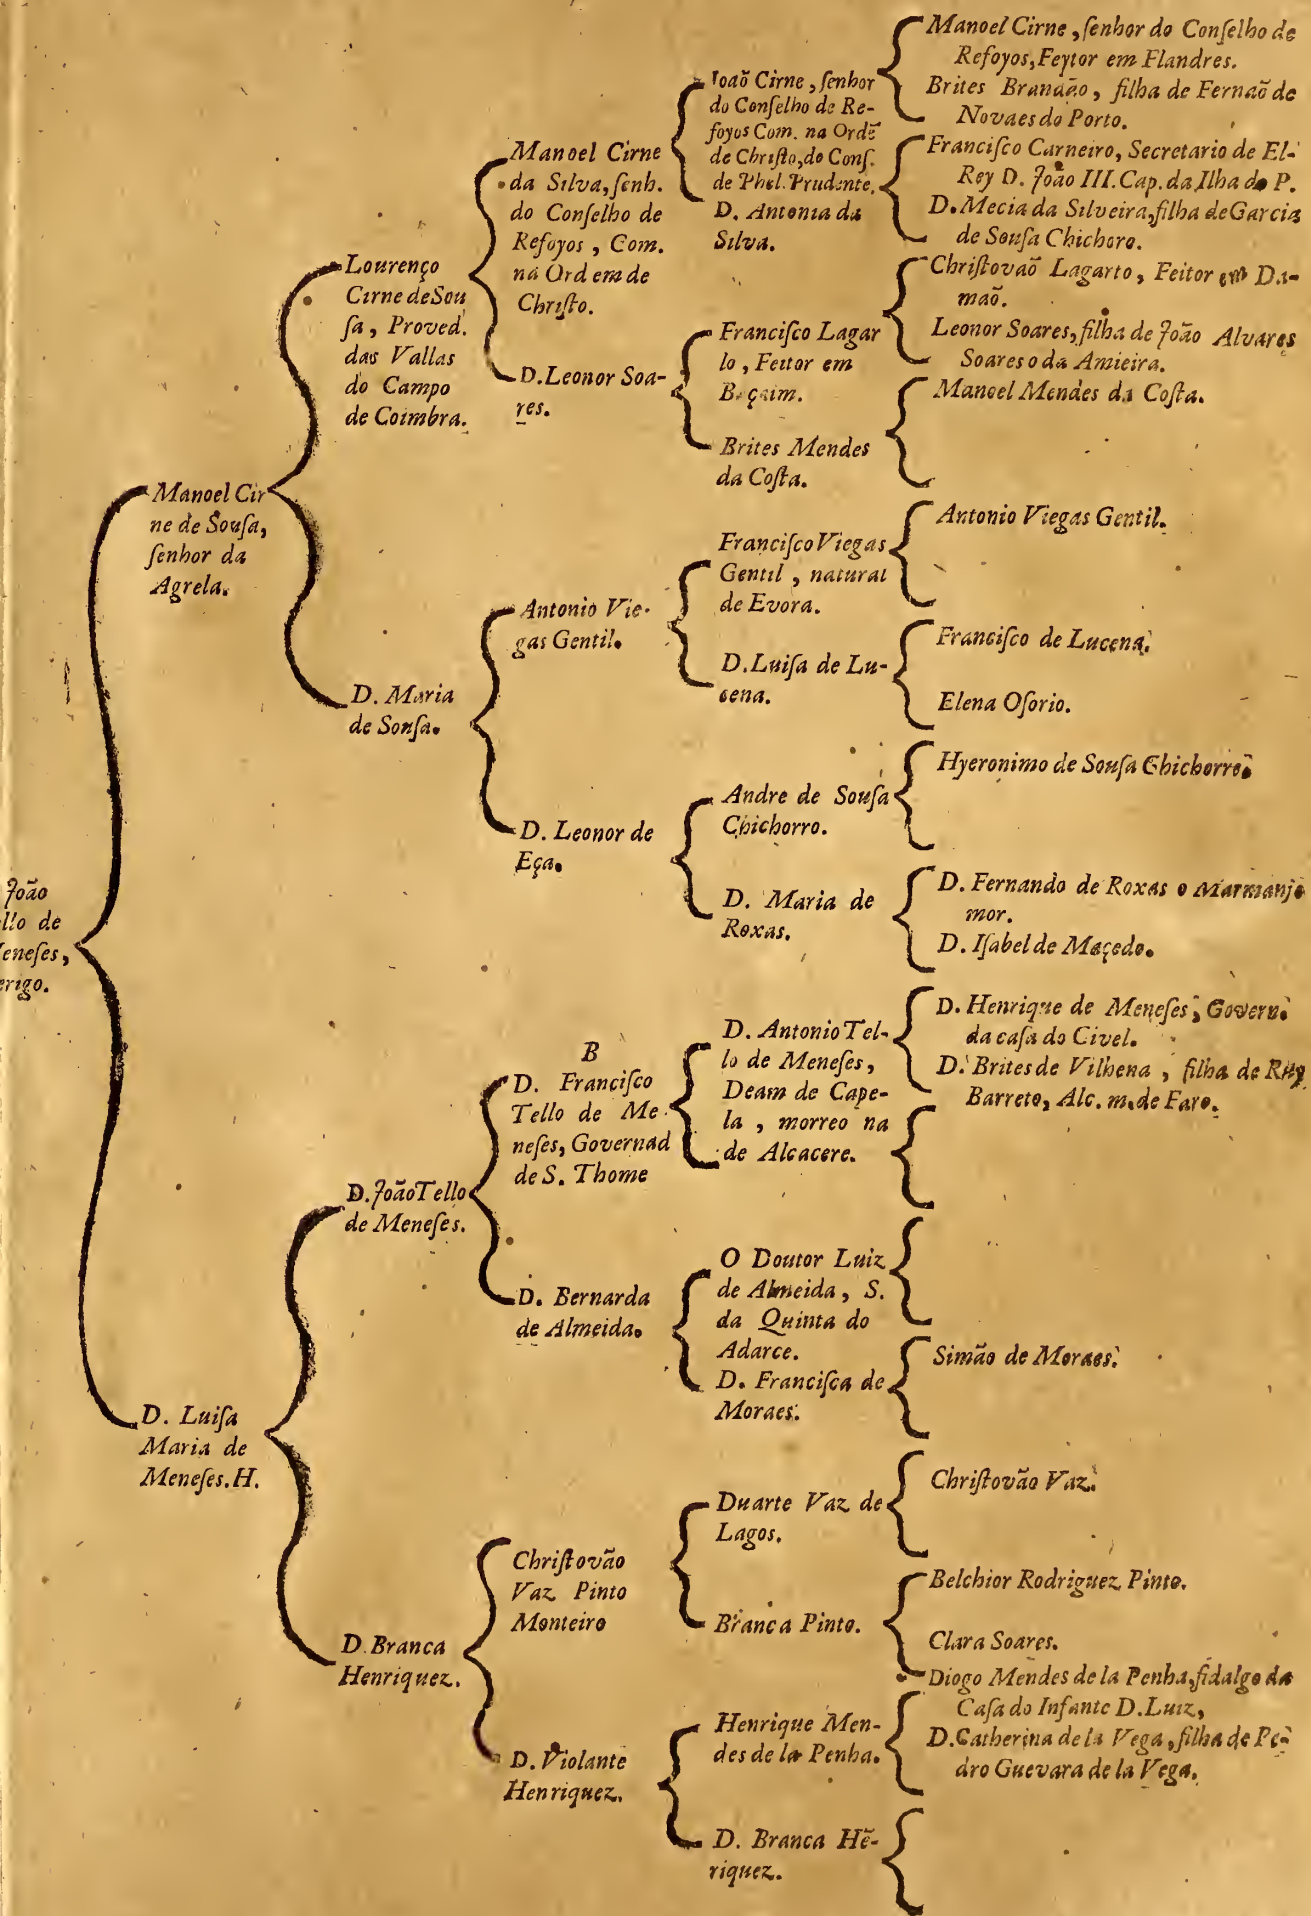 João
llo de
eneſes,
erigo.
Manoel Cir
ne de Souſa,
ſenhor da
Agrela.
D. Luiſa
Maria de
Meneſes. H.
Lourenço
Cirne de Sou
ſa, Proved.
das Vallas
do Campo
de Coimbra.
D. Maria
de Souſa.
D. João Tello
de Meneſes.
D. Branca
Henriquez.
Manoel Cirne
da Silva, ſenh.
do Conſelho de
Refoyos, Com.
na Ordem de
Chriſto.
D. Leonor Soa-
res.
Antonio Vie-
gas Gentil.
D. Leonor de
Eça.
B
D. Franciſco
Tello de Me-
neſes, Governad
de S. Thome
D. Bernarda
de Almeida.
Chriſtovão
Vaz Pinto
Monteiro
D. Violante
Henriquez.
Joaõ Cirne, ſenhor
do Conſelho de Re-
foyos Com. na Ordẽ
de Chriſto, do Conſ.
de Phel. Prudente.
D. Antonia da
Silva.
Franciſco Lagar
lo, Feitor em
Baçaim.
Brites Mendes
da Coſta.
Franciſco Viegas
Gentil, natural
de Evora.
D. Luiſa de Lu-
cena.
Andre de Souſa
Chichorro.
D. Maria de
Roxas.
D. Antonio Tel-
lo de Meneſes,
Deam de Cape-
la, morreo na
de Alcacere.
O Doutor Luiz
de Almeida, S.
da Quinta do
Adarce.
D. Franciſca de
Moraes.
Duarte Vaz de
Lagos.
Branca Pinto.
Henrique Men-
des de la Penha.
D. Branca Hẽ-
riquez.
Manoel Cirne, ſenhor do Conſelho de
Refoyos, Feytor em Flandres.
Brites Brandão, filha de Fernaõ de
Novaes do Porto.
Franciſco Carneiro, Secretario de El-
Rey D. João III. Cap. da Ilha do P.
D. Mecia da Silveira, filha de Garcia
de Souſa Chichoro.
Chriſtovaõ Lagarto, Feitor em Da-
maõ.
Leonor Soares, filha de João Alvares
Soares o da Amieira.
Manoel Mendes da Coſta.
Antonio Viegas Gentil.
Franciſco de Lucena.
Elena Oſorio.
Hyeronimo de Souſa Chichorro.
D. Fernando de Roxas o Marmanjo
mor.
D. Iſabel de Maçedo.
D. Henrique de Meneſes, Govern.
da caſa do Civel.
D. Brites de Vilhena, filha de Ruy
Barreto, Alc. m. de Faro.
Simão de Moraes.
Chriſtovão Vaz.
Belchior Rodriguez Pinto.
Clara Soares.
Diogo Mendes de la Penha, fidalgo da
Caſa do Infante D. Luiz,
D. Catherina de la Vega, filha de Pe-
dro Guevara de la Vega.